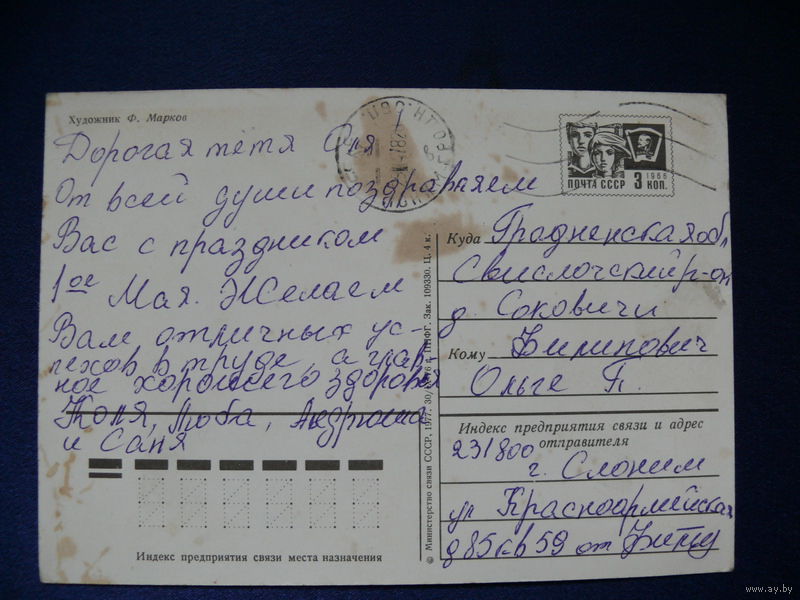 Художник Ф. Марков
Дорогая тётя Оля
От всей души поздравляем
Вас с праздником
1ое Мая. Желаем
Вам отличных ус-
пехов в труде, а глав
ное хорошего здоровья
Коля, Люба, Андрюша
и Саня
Индекс предприятия связи места назначения
© Министерство связи СССР, 1977. Зак. 109330. Ц. 4 к.
1966
ПОЧТА СССР 3 КОП.
Куда Гродненская обл
Свислочский р-он
д. Соковичи
Кому Филипович
Ольге П.
Индекс предприятия связи и адрес
отправителя
231800
г. Слоним
ул Красноармейская
д 85 кв 59 от
www.ay.by